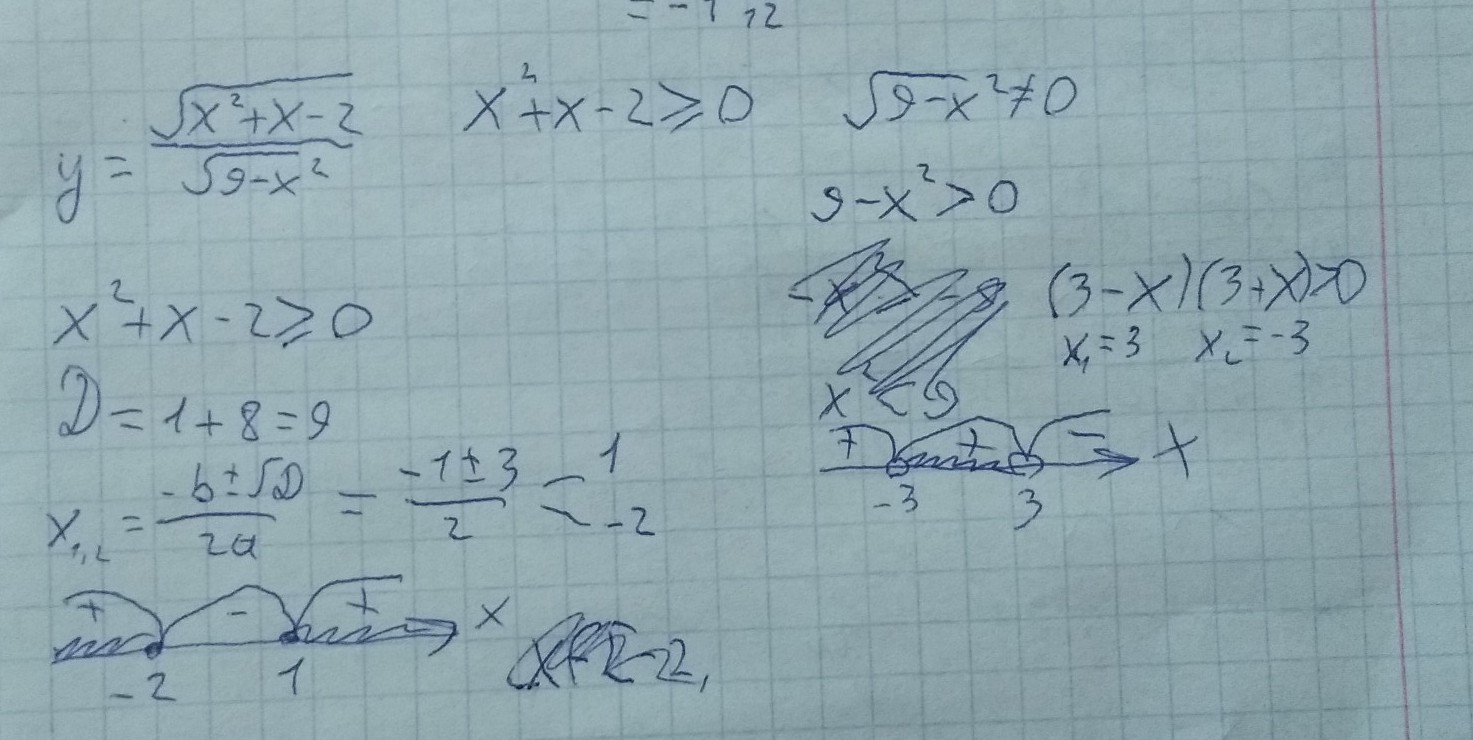 y = √(x²+x-2) / √(9-x²)    x²+x-2≥0    √(9-x²)≠0
9-x²>0
(3-x)(3+x)>0
x₁=3    x₂=-3
x < 9
+ + - x
-3 3
x²+x-2≥0
D=1+8=9
x₁,₂ = (-b±√D)/(2a) = (-1±3)/2 < 1
-2
+ - + x
-2 1